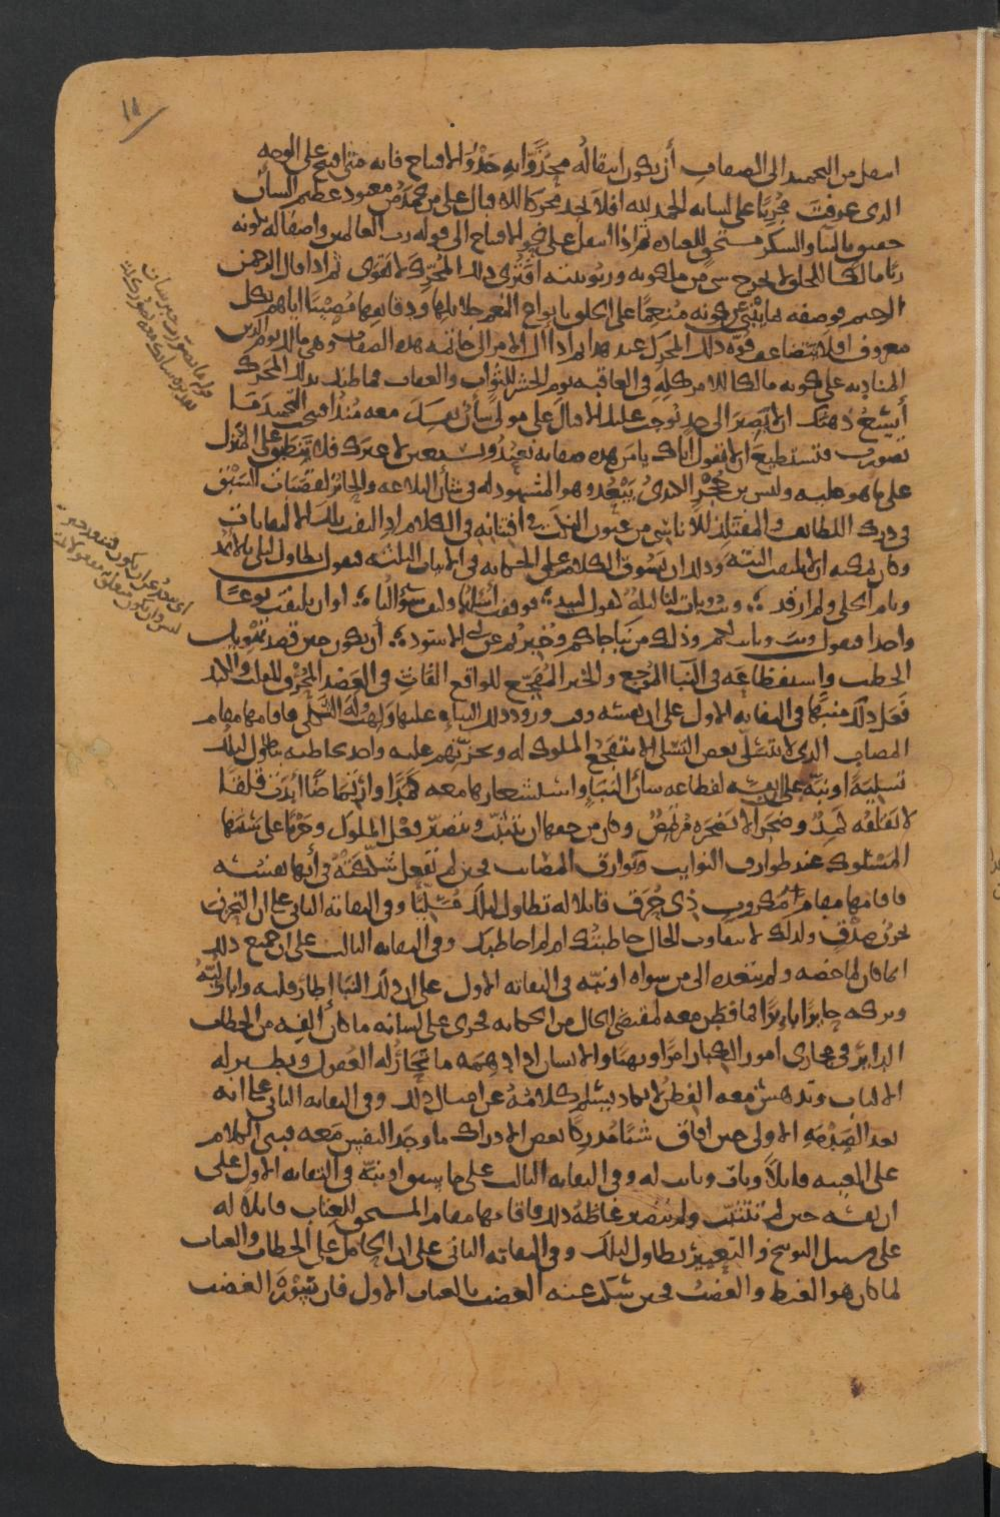 انتقل من التحميد الى الصفات أن يكون انتقاله محذوًا به حذو الافتتاح فانه متى افتتح على الوجه
الذى عرفت مجريًا على لسانه الحمد لله افلا يجد محركا للاقبال على من يحمد من معبود عظيم الشان
حقيق بالثنا والشكر مستحق للعبادة ثم اذا انتقل على نحو الافتتاح الى قوله رب العالمين واصفا له بكونه
ربا مالكا للخلق لا يخرج شى من ملكوته وربوبيته افترى ذلك المحرك لا يقوى ثم اذا قال الرحمن
الرحيم فوصفه بما ينبئ عن كونه منعمًا على الخلق بانواع النعم جلائلها ودقائقها مصيبًا اياهم بكل
معروف افلا تتضاعف قوة ذلك المحرك عند هذا ثم اذا آل الامر الى خاتمة هذه الصفات وهى مالك يوم الدين
المنادية على كونه مالكا للامر كله فى العاقبة يوم الحشر للثواب والعقاب فما ظنك بذلك المحرك
أيسع ذهنك ان لا يصير الى حد يوجب عليك الاقبال على مولى شأن نفسك معه منذ افتتحت التحميد ما
تصورت فتستطيع ان لا تقول اياك يا من هذه صفاته نعبد ونستعين لا غيرك فلا ينطبق على المنزل
على ما هو عليه وليس بن حجر الكندى يبعد وهو المشهود له فى شأن البلاغة والحائز لقصبات السبق
فى درك اللطائف والمفتلذ للاناسى من عيون النكت فى افتنانه فى الكلام اذا التفت تلك الالتفاتات
وكان يمكنه ان لا يلتفت البتة وذلك ان يسوق الكلام على الحكاية فى الابيات الثلثة فيقول تطاول ليلى بالاثمد
ونام الخلى ولم ارقد ؛ وبت وباتت لنا ليلة كقول لبيد ؛ فوقفت أسئلها وكيف سؤالنا ؛ او ان يلتفت نوعًا
واحدا فيقول وبت وباتت لكم وذلك من نبا جاكم وخبرتم عن ابى الاسود ؛ أن يكون حين قصد تهويل
الخطب واستفظاعه فى النبا الموجع والخبر المفجع للواقع الفات فى العضد المحرق للقلب والكبد
فعل ذلك منبها فى التفاته الاول على ان نفسه وقت ورود ذلك النبا عليها ولهت وله الثكلى فاقامها مقام
المصاب الذى لا يتسلى بعض التسلى الا بتفجع الملوك له وتحزنهم عليه واخذ يخاطبه بتطاول ليلك
تسلية او نبه على ان نفسه لفظاعة شأن النبا واستشعارها معه كمدًا وارتماضًا ابدت قلقا
لا يقلقه كمد وضجرا لا يضجره مرتمض وكان من حقها ان تتثبت وتتصبر فعل الملوك وجريا على سننها
المسلوك عند طوارق النوائب وبوارق المصائب فحين لم تفعل شككته فى أنها نفسه
فاقامها مقام مكروب ذى حرق قائلا له تطاول ليلك مسليا وفى التفاته الثانى على ان التحزن
تحزن صدق ولذلك لا يتفاوت الحال خاطبتك ام لم اخاطبك وفى التفاته الثالث على ان جميع ذلك
انما كان لما خصه ولم يتعده الى من سواه او نبه فى التفاته الاول على ان ذلك النبا اطار قلبه واباد لبه
وتركه حائرا بائرًا فما فطن معه لمقتضى الحال من الحكاية فجرى على لسانه ما كان الفه من الخطاب
الدائر فى مجارى امور الكبار امرًا ونهيًا والانسان اذا دهمه ما تحار له العقول وتطير له
الالباب وتدهش معه الفطن لا يكاد يسلم كلامه عن امثال ذلك وفى التفاته الثانى على انه
بعد الصدمة الاولى حين افاق شيئًا مدركا بعض الادراك ما وجد النفس معه فبنى الكلام
على الغيبة قائلًا وبات وباتت له وفى التفاته الثالث على ما سبق او نبه فى التفاته الاول على
ان نفسه حين لم تتثبت ولم تتصبر غاظه ذلك فاقامها مقام المستحق للعتاب قائلا له
على سبيل التوبيخ والتعيير تطاول ليلك وفى التفاته الثانى على ان الحامل على الخطاب والعتاب
لما كان هو الغيظ والغضب فحين سكت عنه الغضب بالعتاب الاول فان سورة الغضب